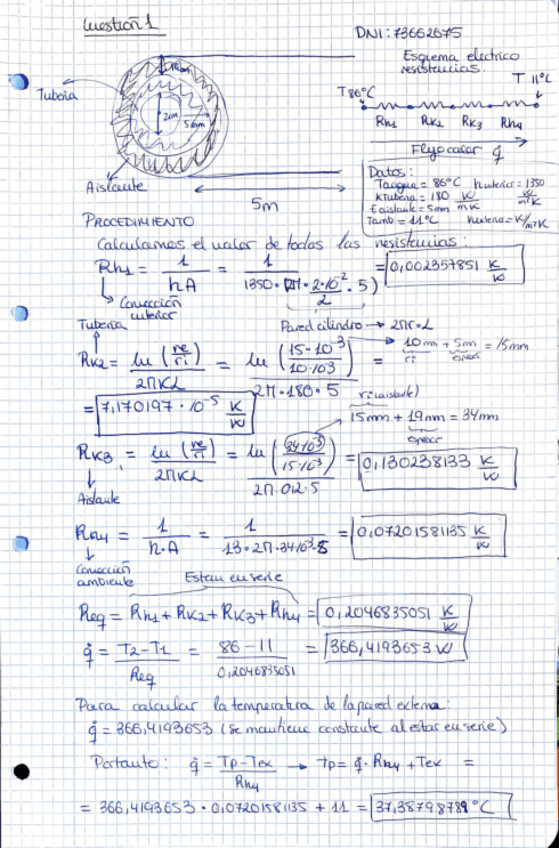 Cuestión 1
DNI: 73662675
Esquema electrico
resistencias.
T 86°C
T 11°C
Rh1 Rk2 Rk3 Rh4
Flujo calor q̇
Tubería
2cm
5mm
Aislante
5m
Datos:
Tagua = 86°C hinterior = 1350 W/m²K
Ktubería = 180 W/mK
Eaislante = 5mm
Tamb = 11°C
PROCEDIMIENTO
Calculamos el valor de todas las resistencias:
Rh1 = 1/(hA) = 1/(1350·(2π·(2·10⁻²)/2·5)) = 0,002357851 K/W
Convección
interior
Tubería
Pared cilindro → 2πr·L
Rk2 = ln(re/ri)/(2πKL) = ln(15·10⁻³/10·10⁻³)/(2π·180·5) =
10mm + 5mm = 15mm
ri espesor
= 7,170197·10⁻⁵ K/W
ri (aislante)
15mm + 19mm = 34mm
espesor
Rk3 = ln(re/ri)/(2πKL) = ln(34·10⁻³/15·10⁻³)/(2π·0,2·5) = 0,130238133 K/W
Aislante
Rh4 = 1/(h·A) = 1/(13·2π·34·10⁻³·5) = 0,07201581135 K/W
Convección
ambiente
Estan en serie
Req = Rh1 + Rk2 + Rk3 + Rh4 = 0,2046835051 K/W
q̇ = (T2-T1)/Req = (86-11)/0,2046835051 = 366,4193653 W
Para calcular la temperatura de la pared externa:
q̇ = 366,4193653 (se mantiene constante al estar en serie)
Portanto: q̇ = (Tp-Tex)/Rh4 → Tp = q̇·Rh4 + Tex =
= 366,4193653 · 0,07201581135 + 11 = 37,38798789°C